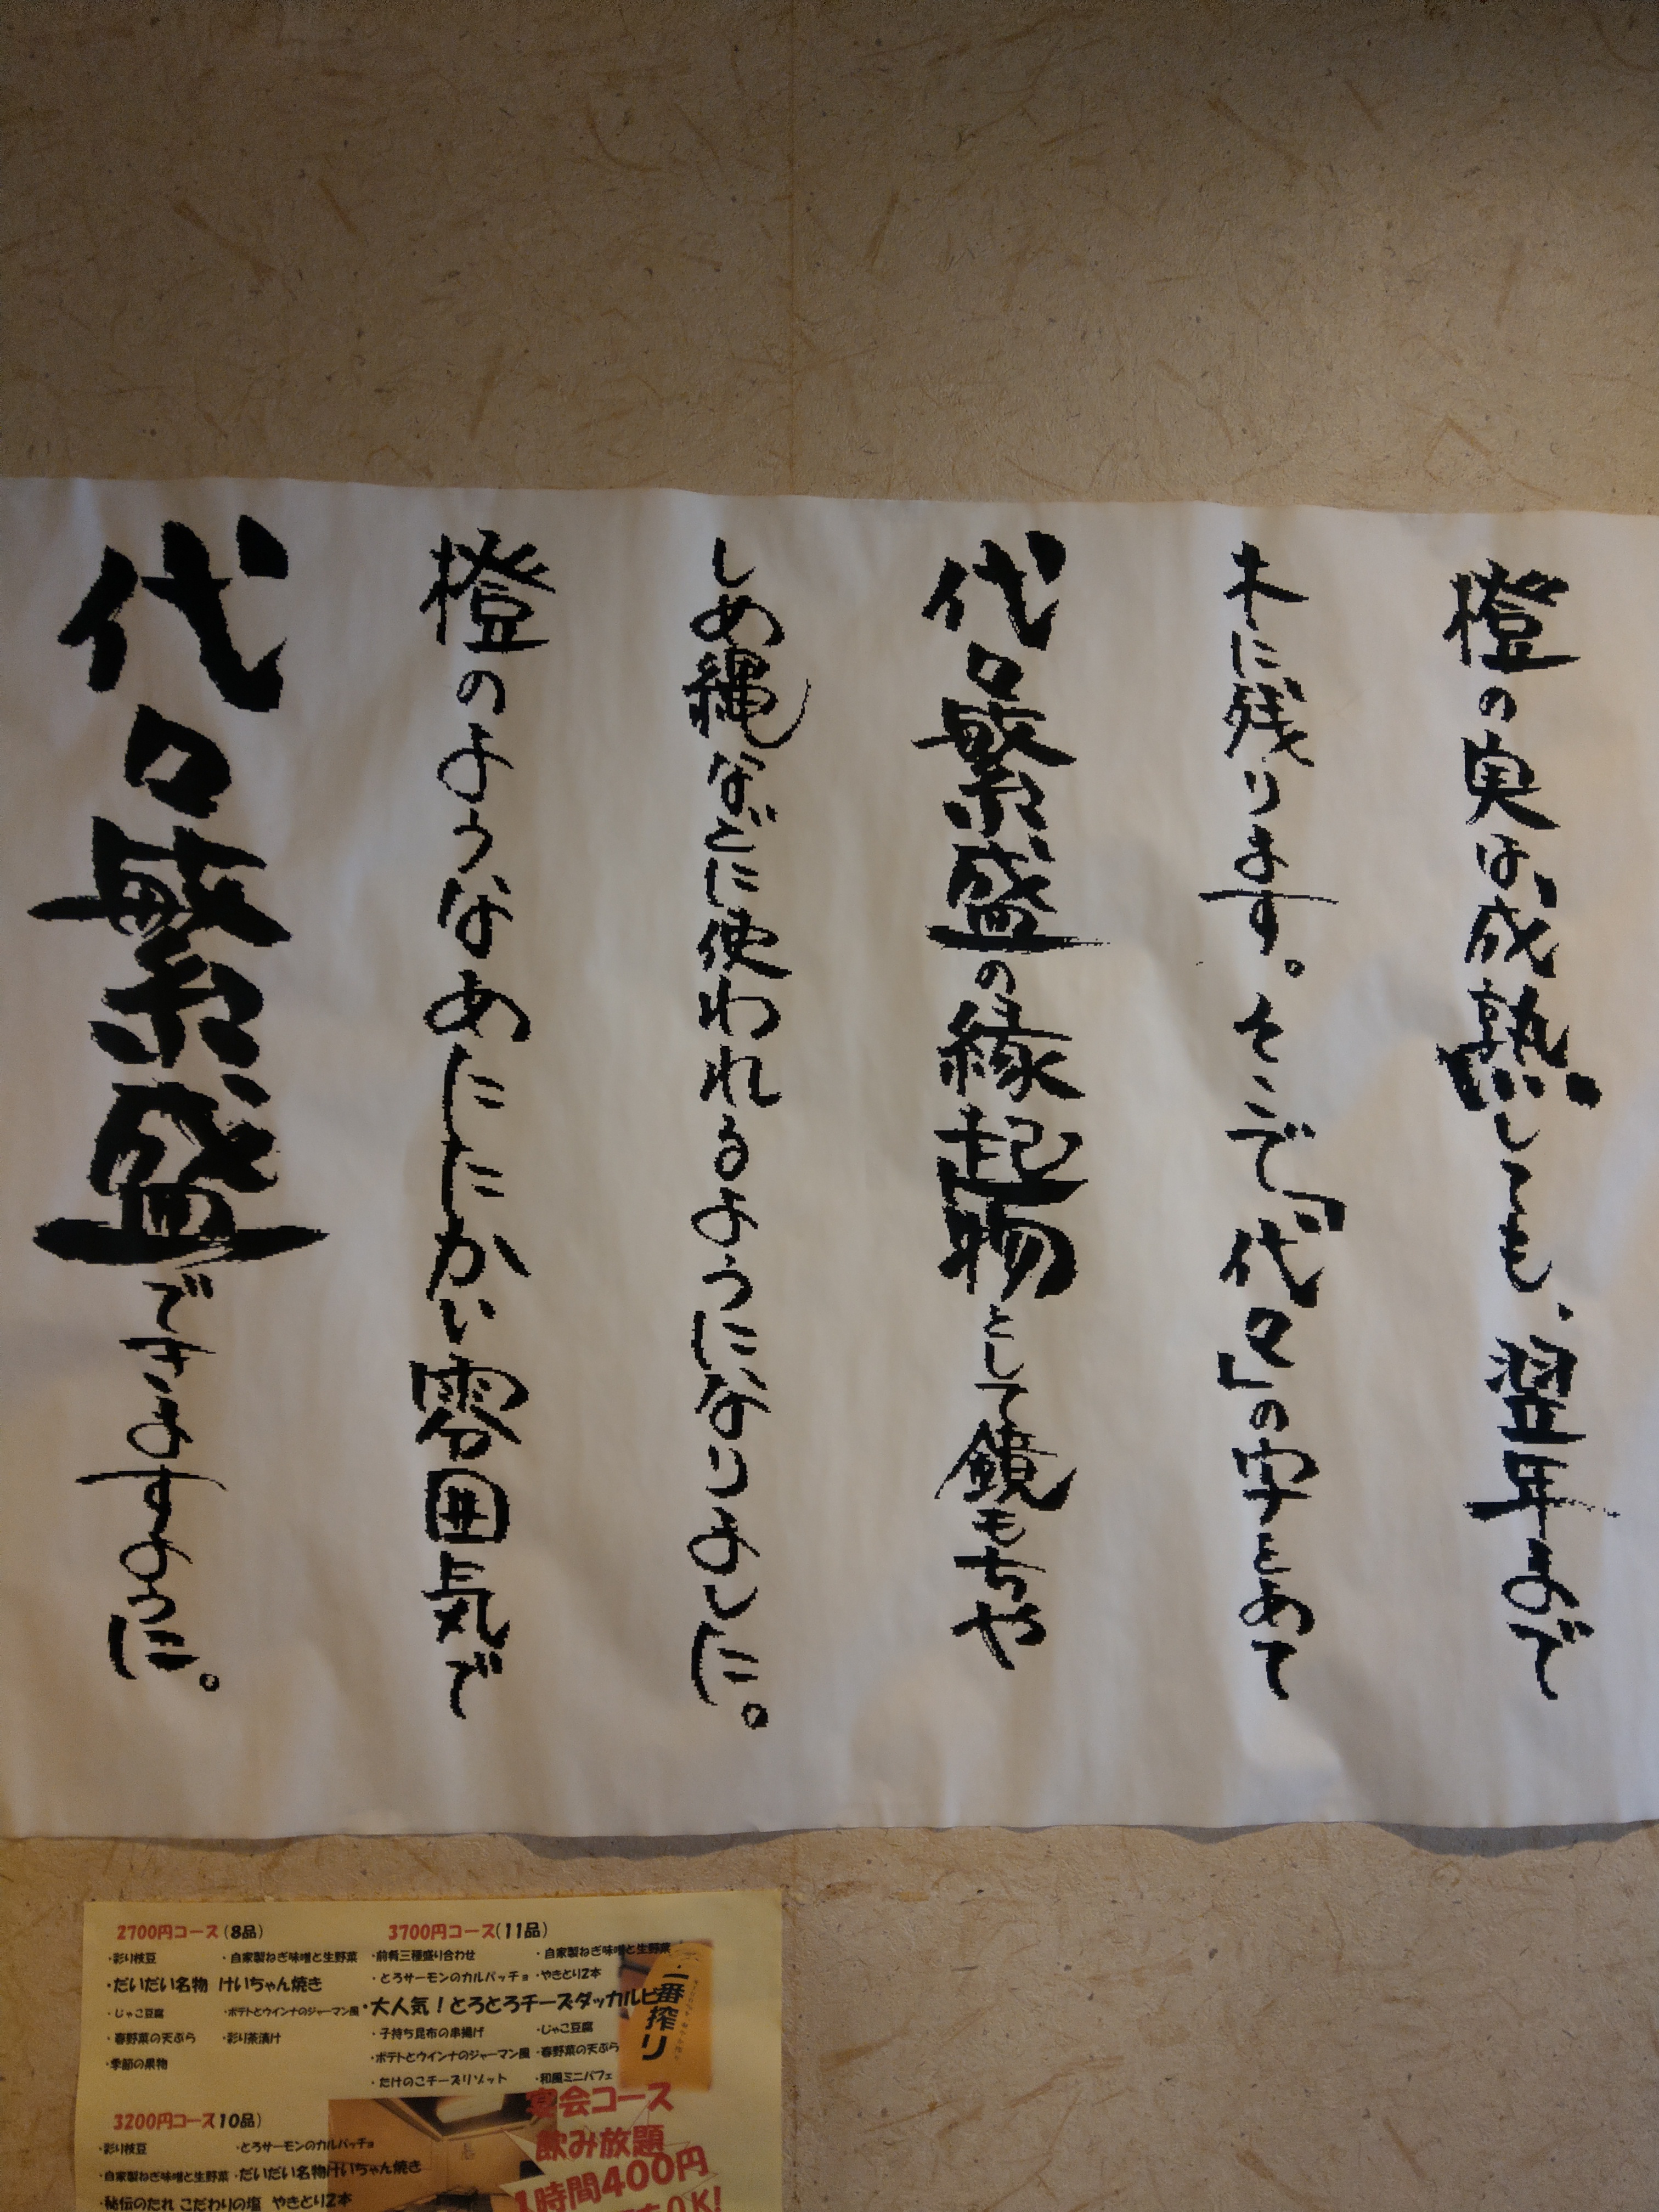 橙の実は、成熟しても、翌年まで
木に残ります。そこで「代々」の字をあて
代々繁盛の縁起物として鏡もちや
しめ縄などに使われるようになりました。
橙のようなあたたかい雰囲気で
代々繁盛できますように。
2700円コース(8品)
・彩り枝豆
・自家製ねぎ味噌と生野菜
・だいだい名物 けいちゃん焼き
・じゃこ豆腐
・ポテトとウインナのジャーマン風
・春野菜の天ぷら
・彩り茶漬け
・季節の果物
3700円コース(11品)
・前肴三種盛り合わせ
・自家製ねぎ味噌と生野菜
・とろサーモンのカルパッチョ
・やきとり2本
・大人気！とろとろチーズダッカルビ
・子持ち昆布の串揚げ
・じゃこ豆腐
・ポテトとウインナのジャーマン風
・春野菜の天ぷら
・たけのこチーズリゾット
・和風ミニパフェ
一番搾り
3200円コース10品)
・彩り枝豆
・とろサーモンのカルパッチョ
・自家製ねぎ味噌と生野菜
・だいだい名物けいちゃん焼き
・秘伝のたれ こだわりの塩 やきとり2本
宴会コース
飲み放題
1時間400円
OK!